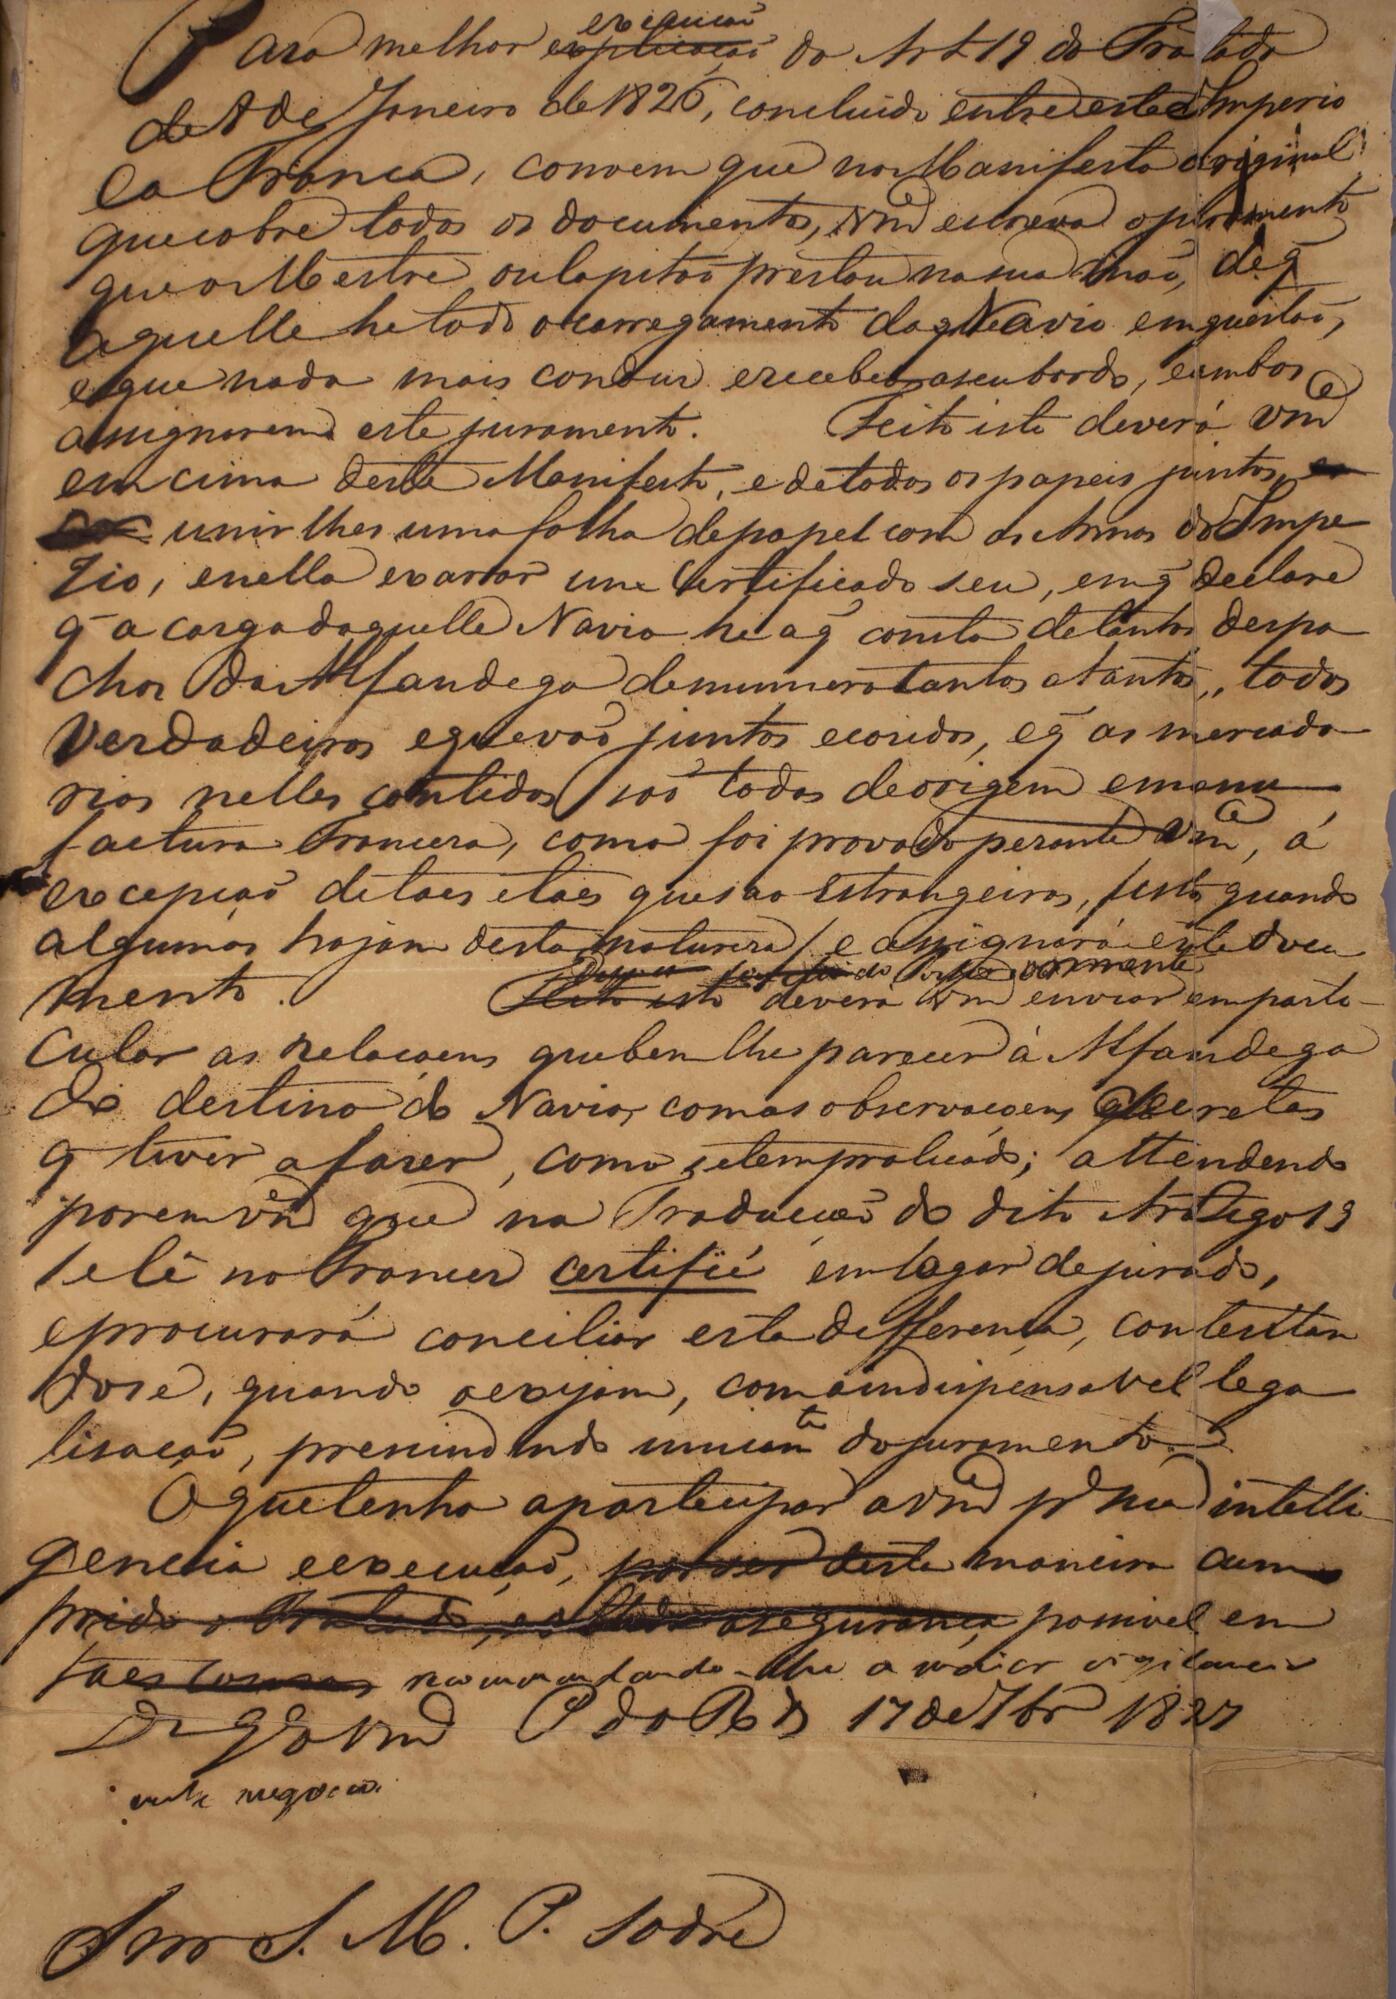 execução
Para melhor explicação do Art 19 do Tratado
de 8 de Janeiro de 1826, concluido entre este Imperio
e a França, convem que no Manifesto original
que cobre todos os documentos, Vmce escreva o juramento
que o Mestre ou Capitão prestou na sua mão, de q
aquelle he todo o carregamento do Navio em questão,
e que nada mais conduz e recebeo a seu bordo, e ambos
assignarem este juramento. Feito isto deverá Vmce
em cima deste Manifesto, e de todos os papeis juntos,
unir lhes uma folha de papel com as Armas do Impe
rio, e nella exarar um Certificado seu, em q declare
q a carga daquelle Navio he a q consta de tantos despa
chos da Alfandega de numero tantos a tantos, todos
verdadeiros e que vão juntos e cosidos, e q as mercado
rias nelles contidas são todas de origem e manu
factura Franceza, como foi provado perante Vmce, á
excepção de taes e taes que são Estrangeiras, isto quando
algumas hajam desta natureza / e assignará este docu
mento. Feito isto deverá Vmce enviar em parti
cular as relaçoens que bem lhe parecer á Alfandega
do destino do Navio, com as observaçoens secretas
q tiver a fazer, como se tem praticado; attendendo
porem Vmce que na Traducção do dito Artigo 19
se lê no Francez certifié em lugar de jurado,
e procurará conciliar esta differença, contentan
dose, quando o exijam, com a indispensavel lega
lisação, prescindindo unicamte do juramento.
O que tenho a participar a Vmce pa sua intelli
gencia e execução, por ser desta maneira cum
prido o Tratado, e a segurança possivel em
taes cousas recommendando-lhe a maior vigilancia
Ds Gde a Vmce P do Ro de 17 de 7br 1827
neste negocio.
Snr J. M. P. Sodré